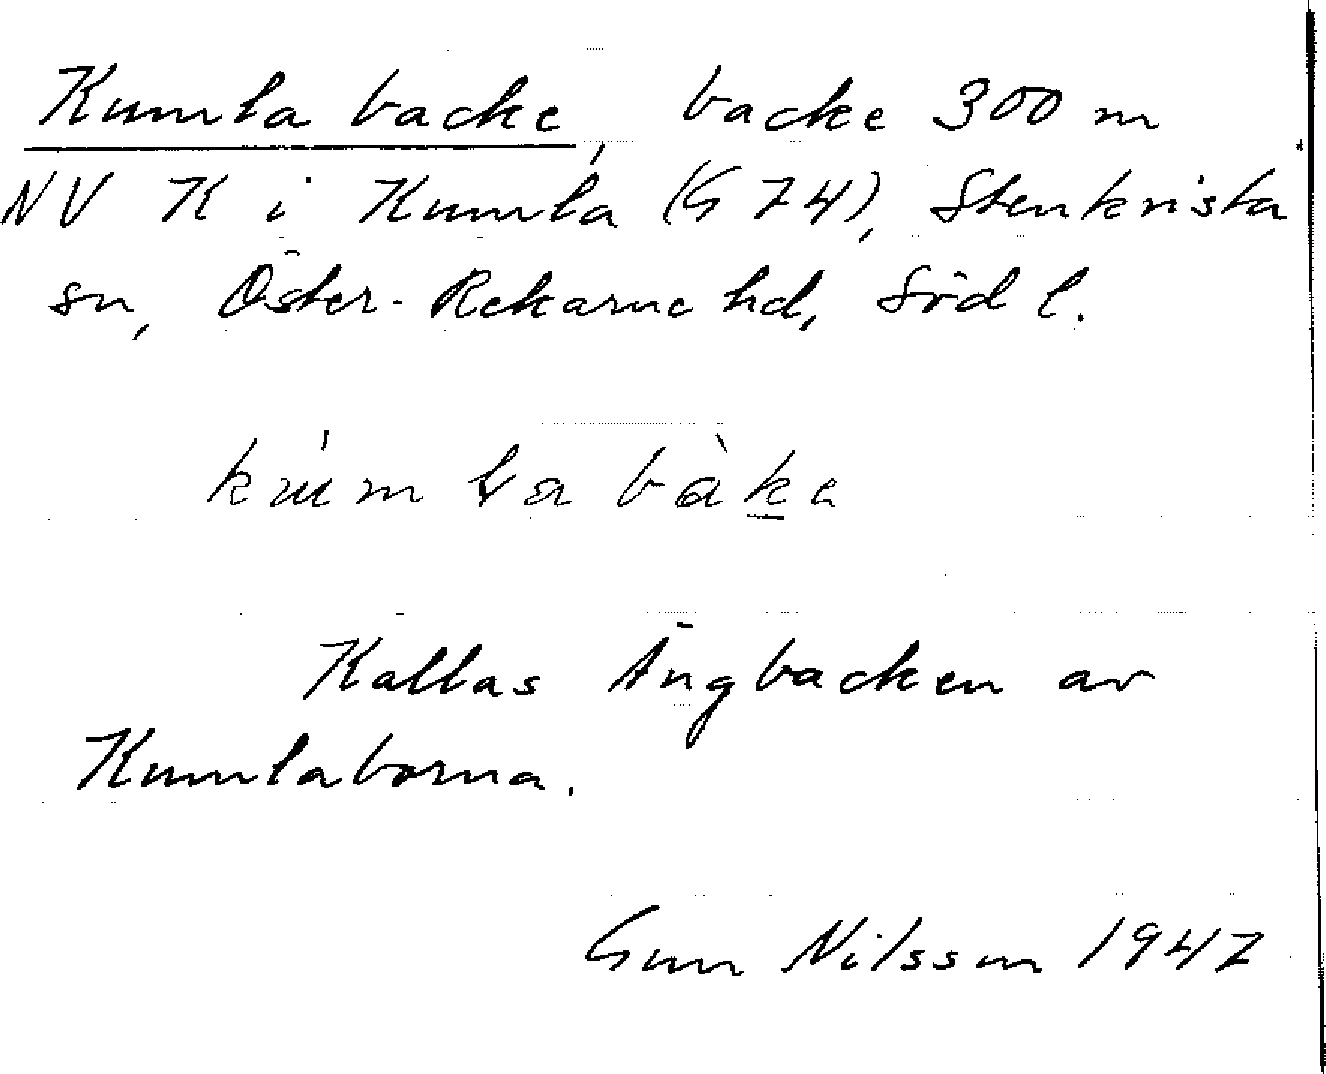 Kumla backe, backe 300 m
NV K i Kumla (G 74), Stenkvista
sn, Öster-Rekarne hd, Södl.
Kallas Ängbacken av
Kumlaborna.
Gun Nilsson 1947